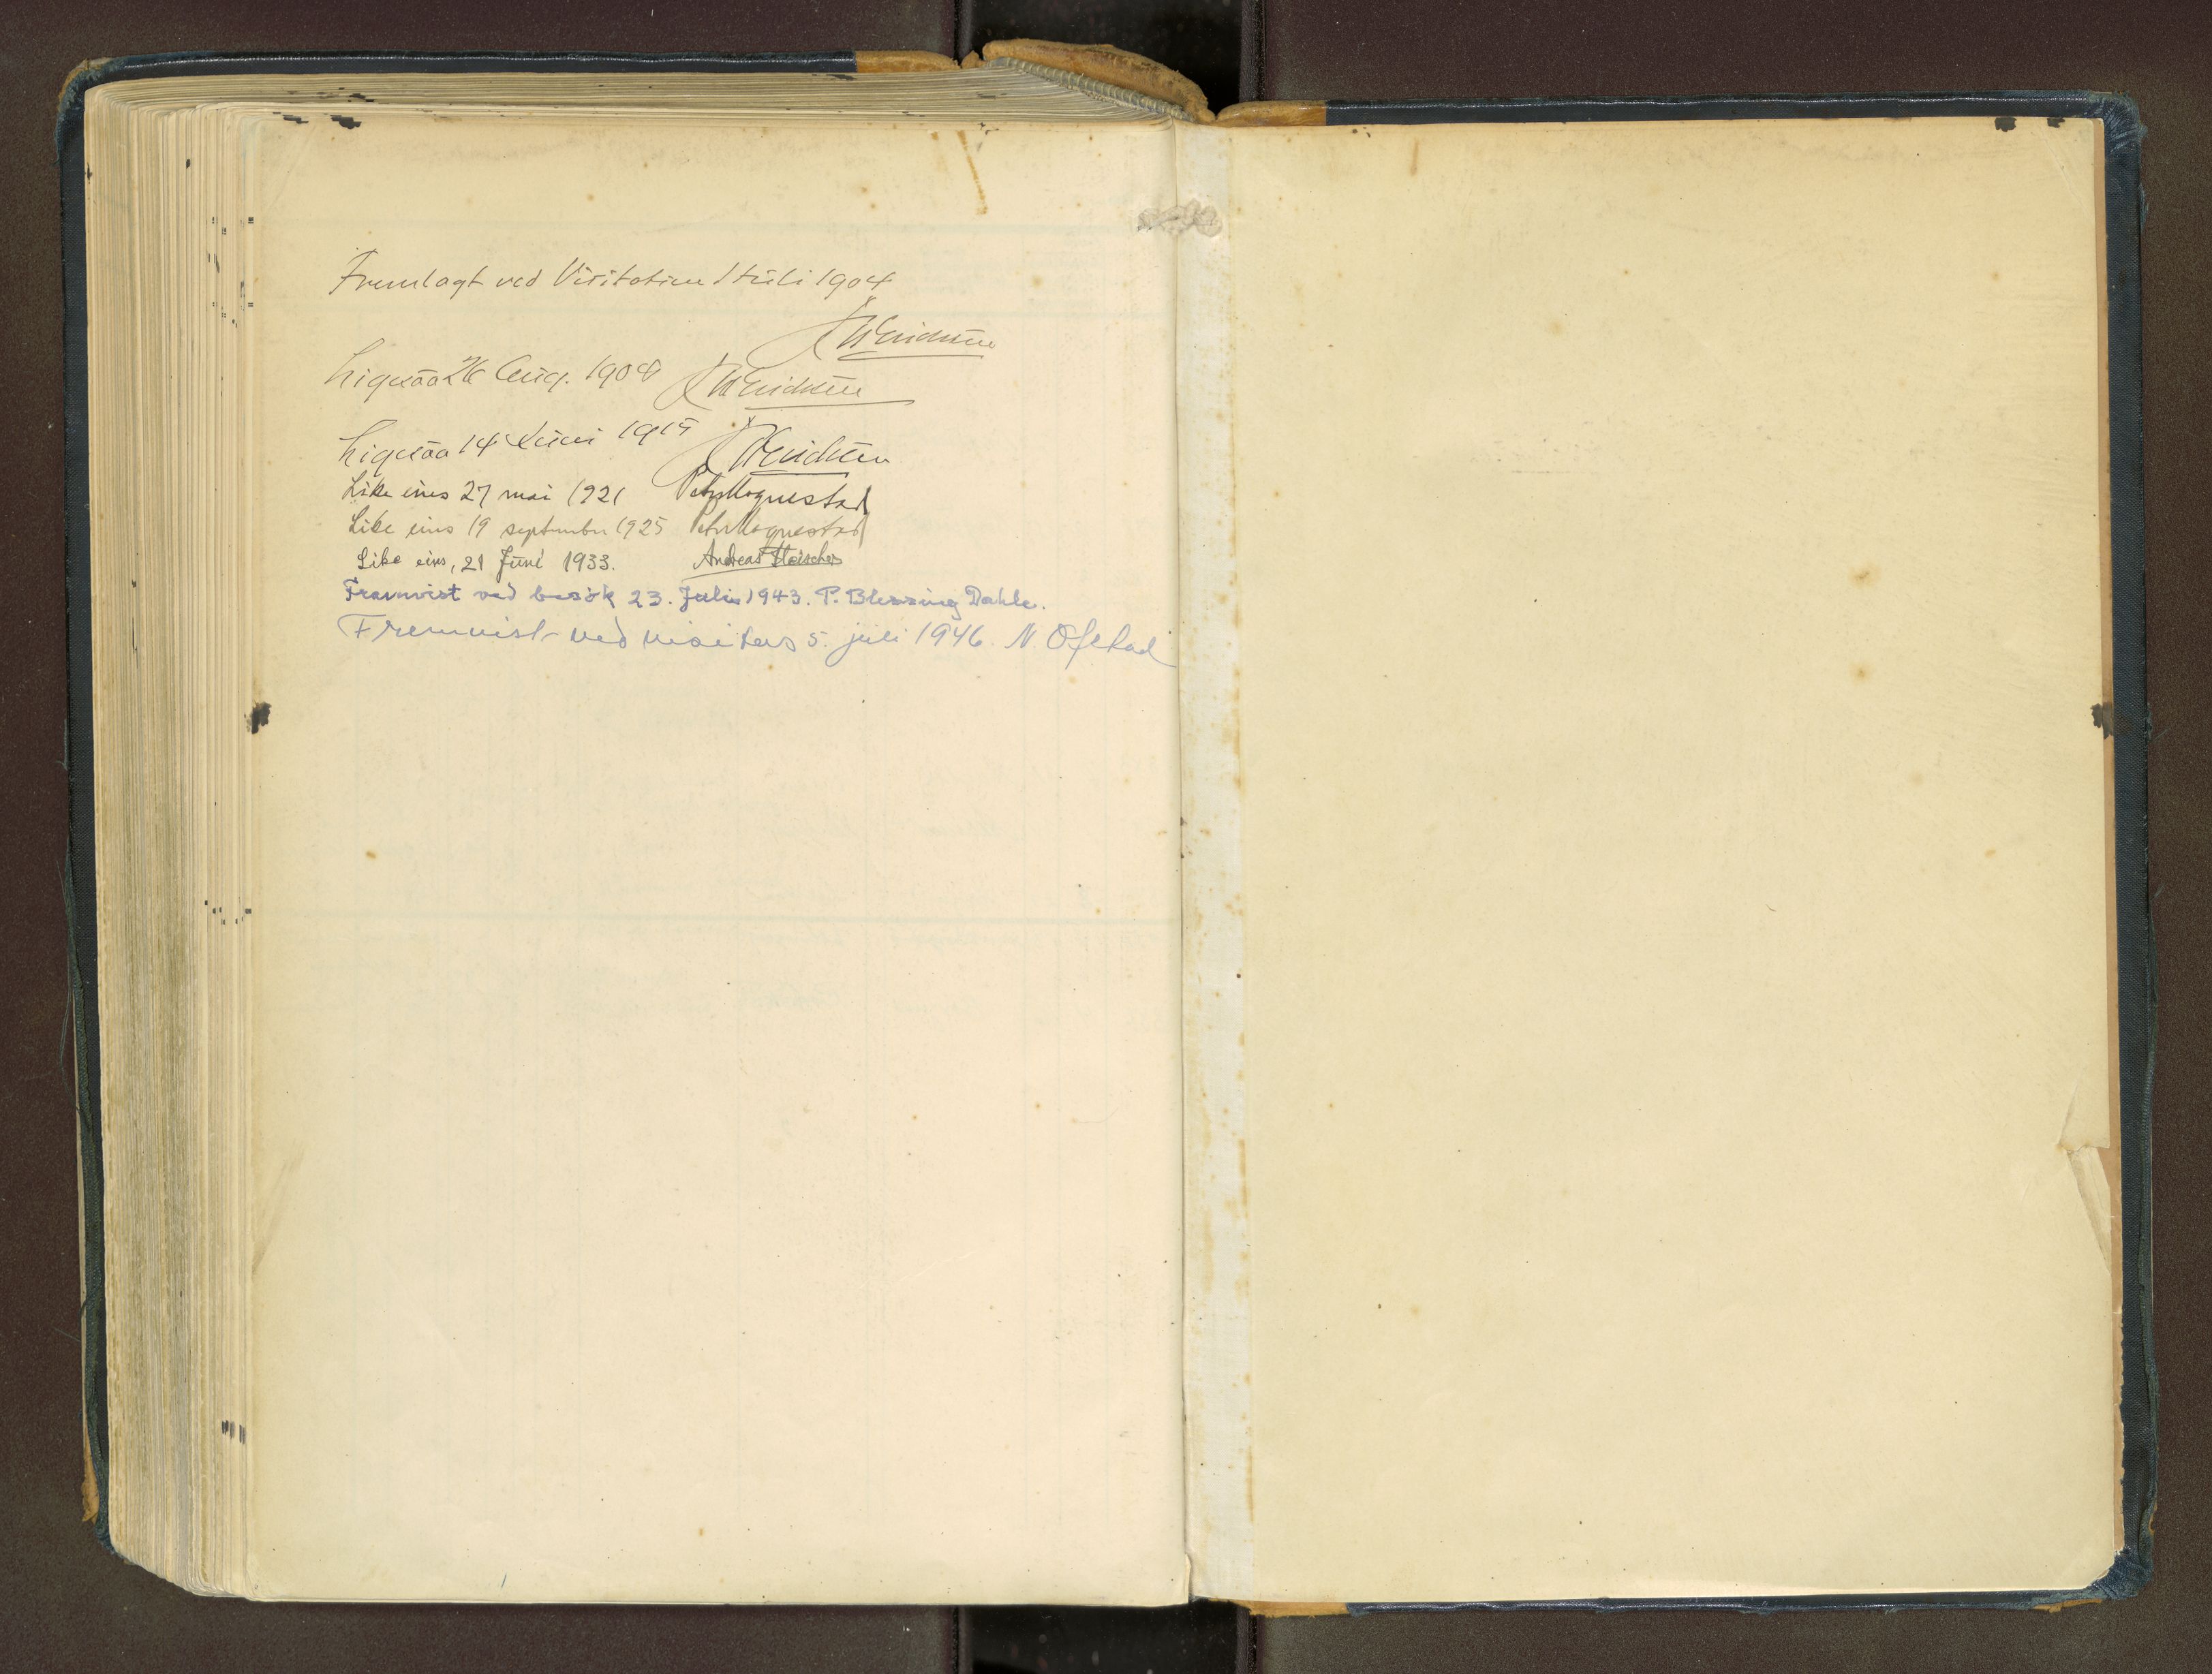 Fremlagt ved Visitatien 1 Juli 1904
Ligesaa 26 Aug. 1908
Ligesaa 14 Juni 1915
Like eins 27 mai 1921 Petr Hognestad
Like eins 19 septembr 1925 Petr Hognestad
Like eins, 21 Juni 1933. Andreas Fleischer
Framvist ved besök 23. Juli 1943. P. Blessing Dahle.
Fremvist ved visitas 5. juli 1946. N. Ofstad